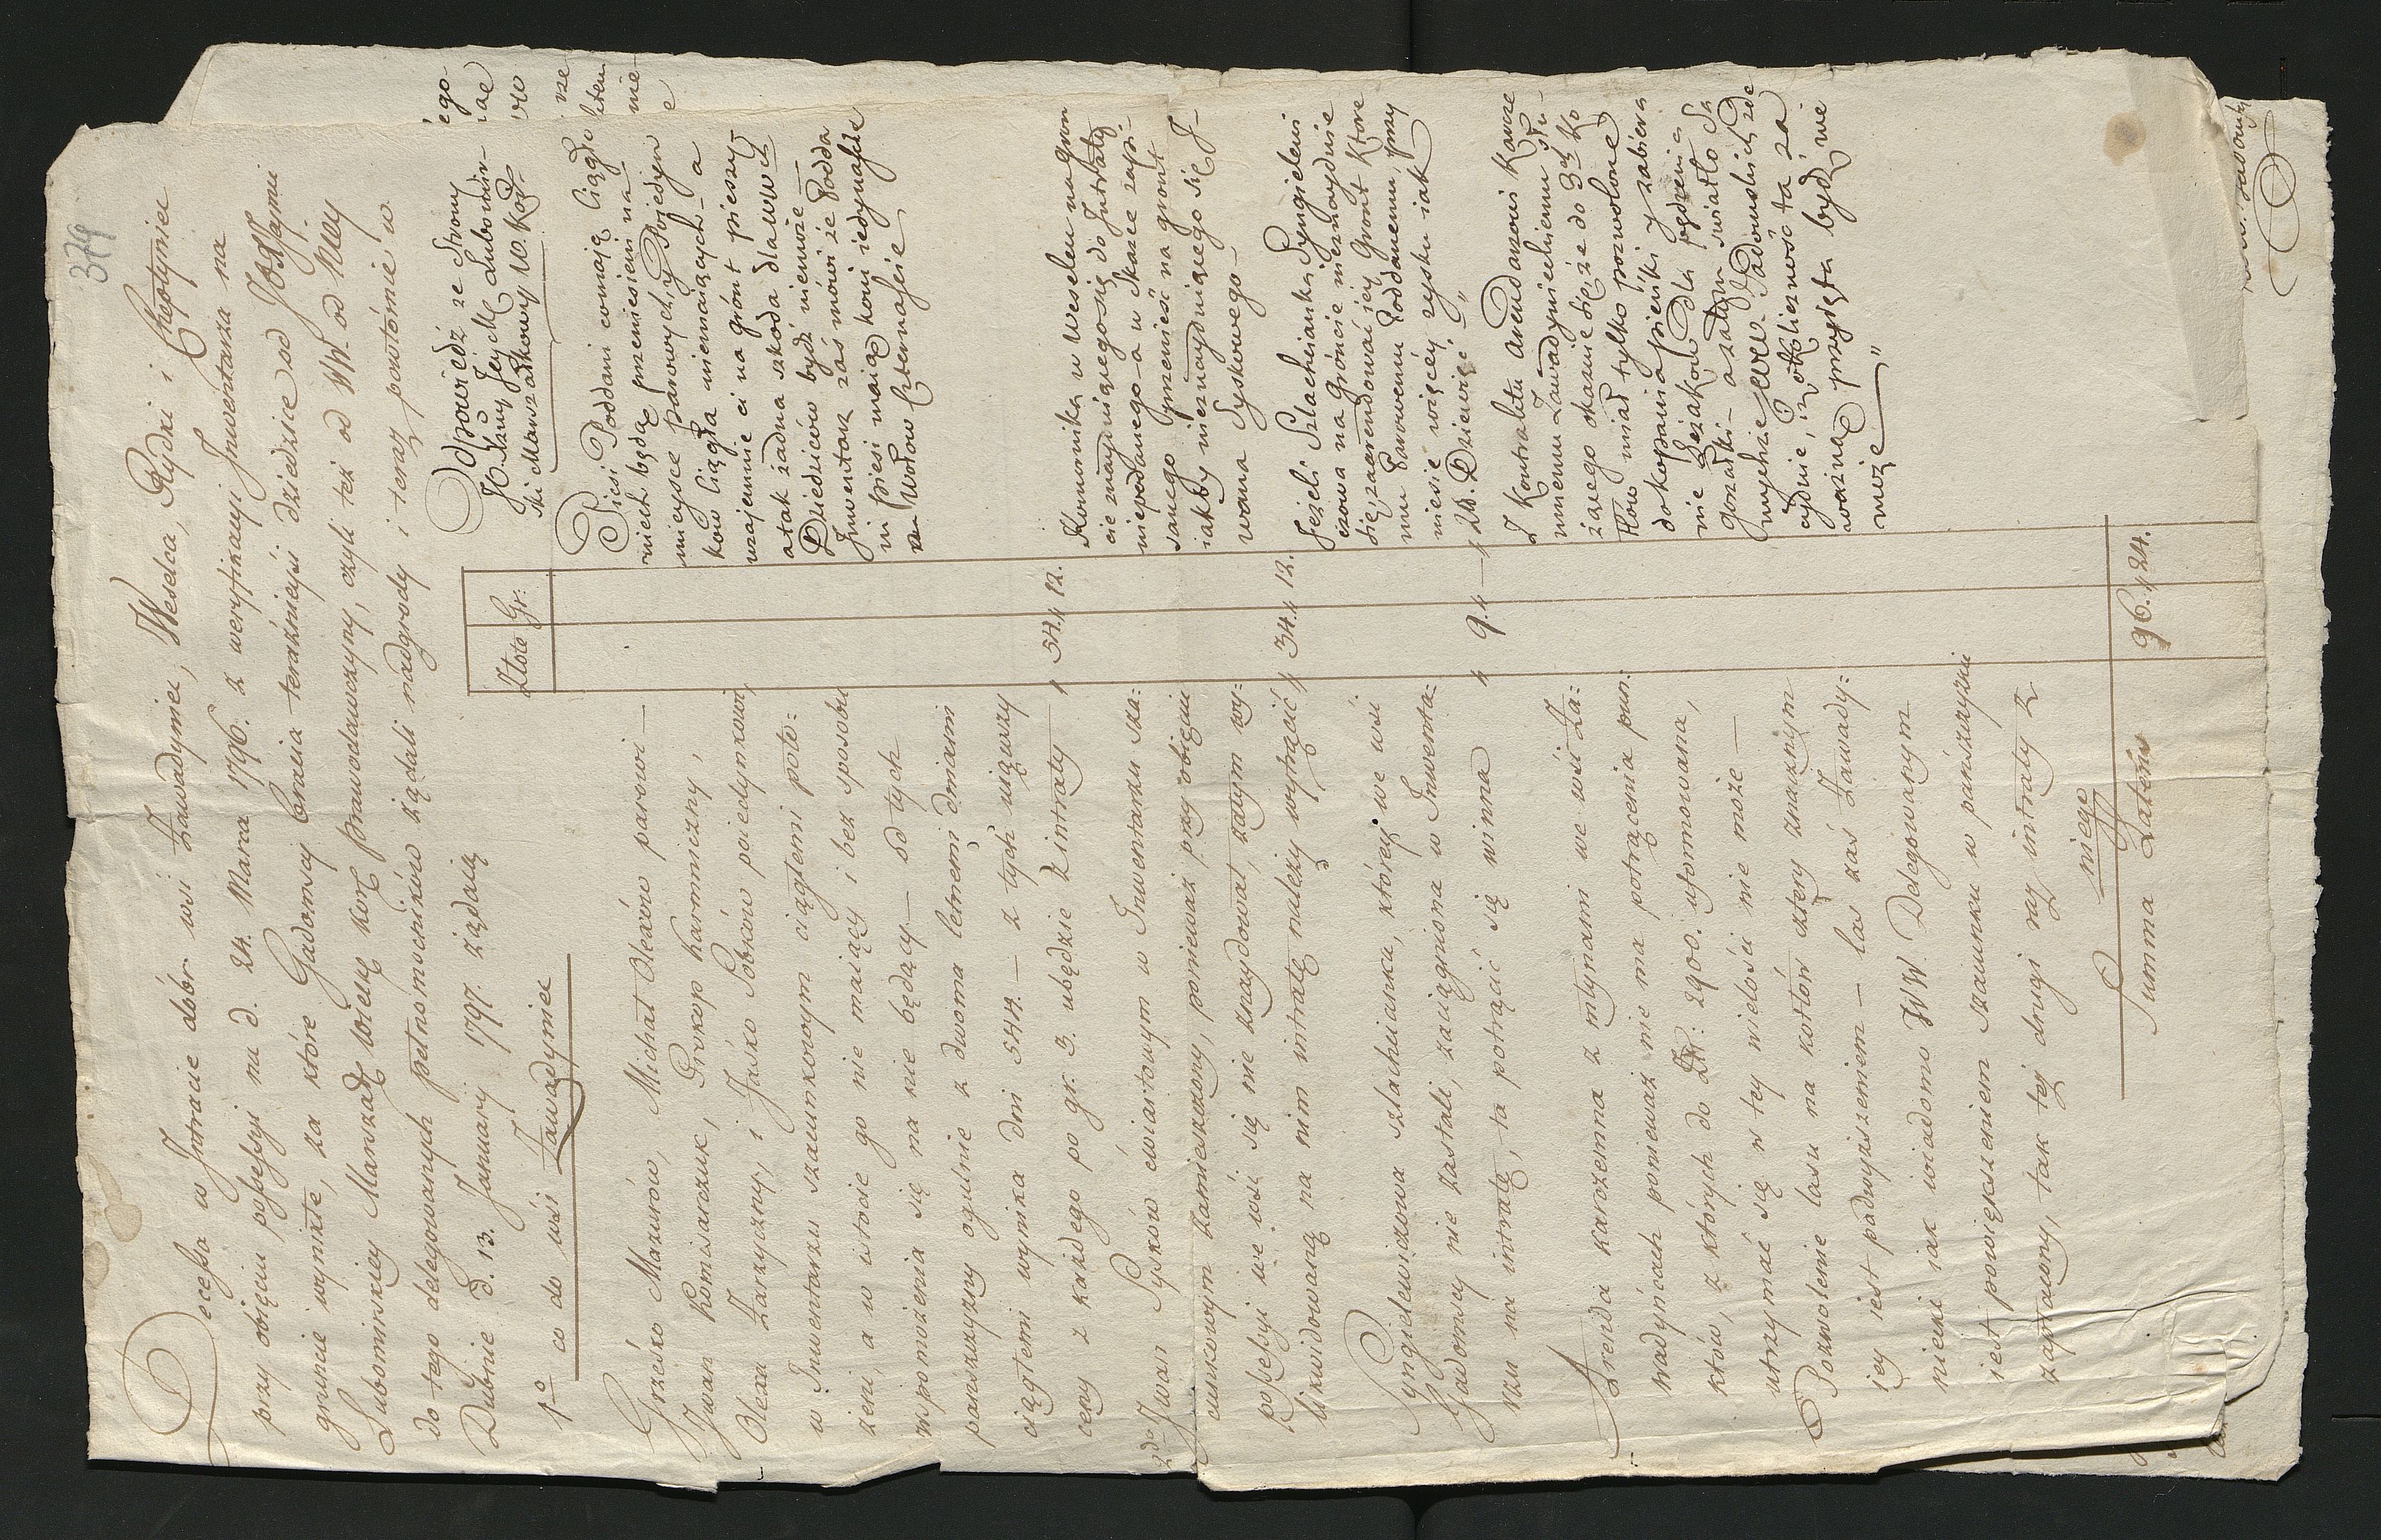 379
Decessa w Intracie dóbr wsi Zawadyniec, Weselca, Rydki i Chrotyniec
przy obięciu possessyi na d. 24. Marca 1796. z weryfikacyi Inwentarza na
gruncie wynikłe, za które Gadomscy bracia teraźnieysi dziedzice od JO. Xięźny
Lubomirskiey Marszałk: Wielkę Kor: prawodawczyny, czyli też od WW. od Niey
do tego delegowanych pełnomocników żądali nadgrody i teraz powtórnie w
Dubnie d. 13. January 1797. żądaią
1mo co do wsi Zawadyniec
Złote Gr:
Grześko Mazurów, Michał Olexów parowi —
Iwan Komisarczuk, Prokop Karmiczny,
Olexa Zarzyczny, i Jaśko Sobków poiedynkowi,
w Inwentarzu szacunkowym ciągłemi poło:
żeni, a w istocie go nie maiący i bez sposobu
wspomożenia się na nie będący — od tych
pańszczyzny ogulnie z dwoma letnemi dniami
ciągłemi wynika dni 544. — z tych wziąwszy
ceny z każdego po gr. 3. ubędzie z intraty — „ 54. „ 12.
2do Iwan Syskow ćwiartowym w Inwentarzu sza:
cunkowym zamieszczony, ponieważ przy obięciu
possessyi we wsi się nie znaydował, zatym wy:
likwidowaną na nim intratę należy wytrącić „ 34. „ 12.
Syngielewiczowa szlachcianka, którey we wsi
Gadomscy nie zastali, zaciągniona w Inwenta:
rzu na intratę, ta potrącić się winna „ 9. „ —
Arenda karczemna z młynami we wsi Za:
wadyńcach ponieważ nie ma potrącenia pun:
któw, z których do Zł: 2900. uformowana,
utrzymać się w tey wielości nie może —
Pozwolenie lasu na kotłów cztery znacznym
iey iest podwyższeniem — las zaś Zawady:
niecki iak wiadomo WW. Delegowanym
iest powiększeniem szacunku w pańszczyźni
zaprawny, tak tej drugi raz intraty z
niego
Summa Lateris 96. „ 24.
Odpowiedź ze strony
JO. Xiężny Jeycḱ Lubomir-
ski Marszałkowy W. Kor:
Piesi Poddani co maią ciągło
niech będą przeniesieni na
mieysce parowych y Poiedyn
kow ciągła niemaiących — a
wzajemnie ci na grónt pieszy
a tak żadna szkoda dla WW
Dziedziców bydź niemoże —
Inwentarz zaś mówi że Podda
ni piesi maią koni iedynaście
Wołow czternaście
Komornika w Weselcu na gron
cie znayduiącego się do Intraty
niepodanego — a w skazce zapi-
sanego przenieść na gront
iakby nieznayduiącego się J-
wana Syskowego —
Jeżeli Szlachcianka Syngielewi
czowa na gróncie nieznayduie
się, zaarendować iey gront ktore
mu Parowemu Poddanemu, przy
niesie więcéy zysku iak
Zł. Dziewięć „
Z Kontraktu Arendarzowi Karcze
mnemu Zawadynieckiemu słu-
żącego okazuie się, że do 3ch Ko
tłow miał tylko pozwolone
do kopania pieńki y zabiera
nie leżakow dla pędzenia
gorzałki — a zatym światło Sa
mychże WW. Sadowskich zde
cyduie, iż okoliczność ta za
ważna przyięta bydź nie
może „